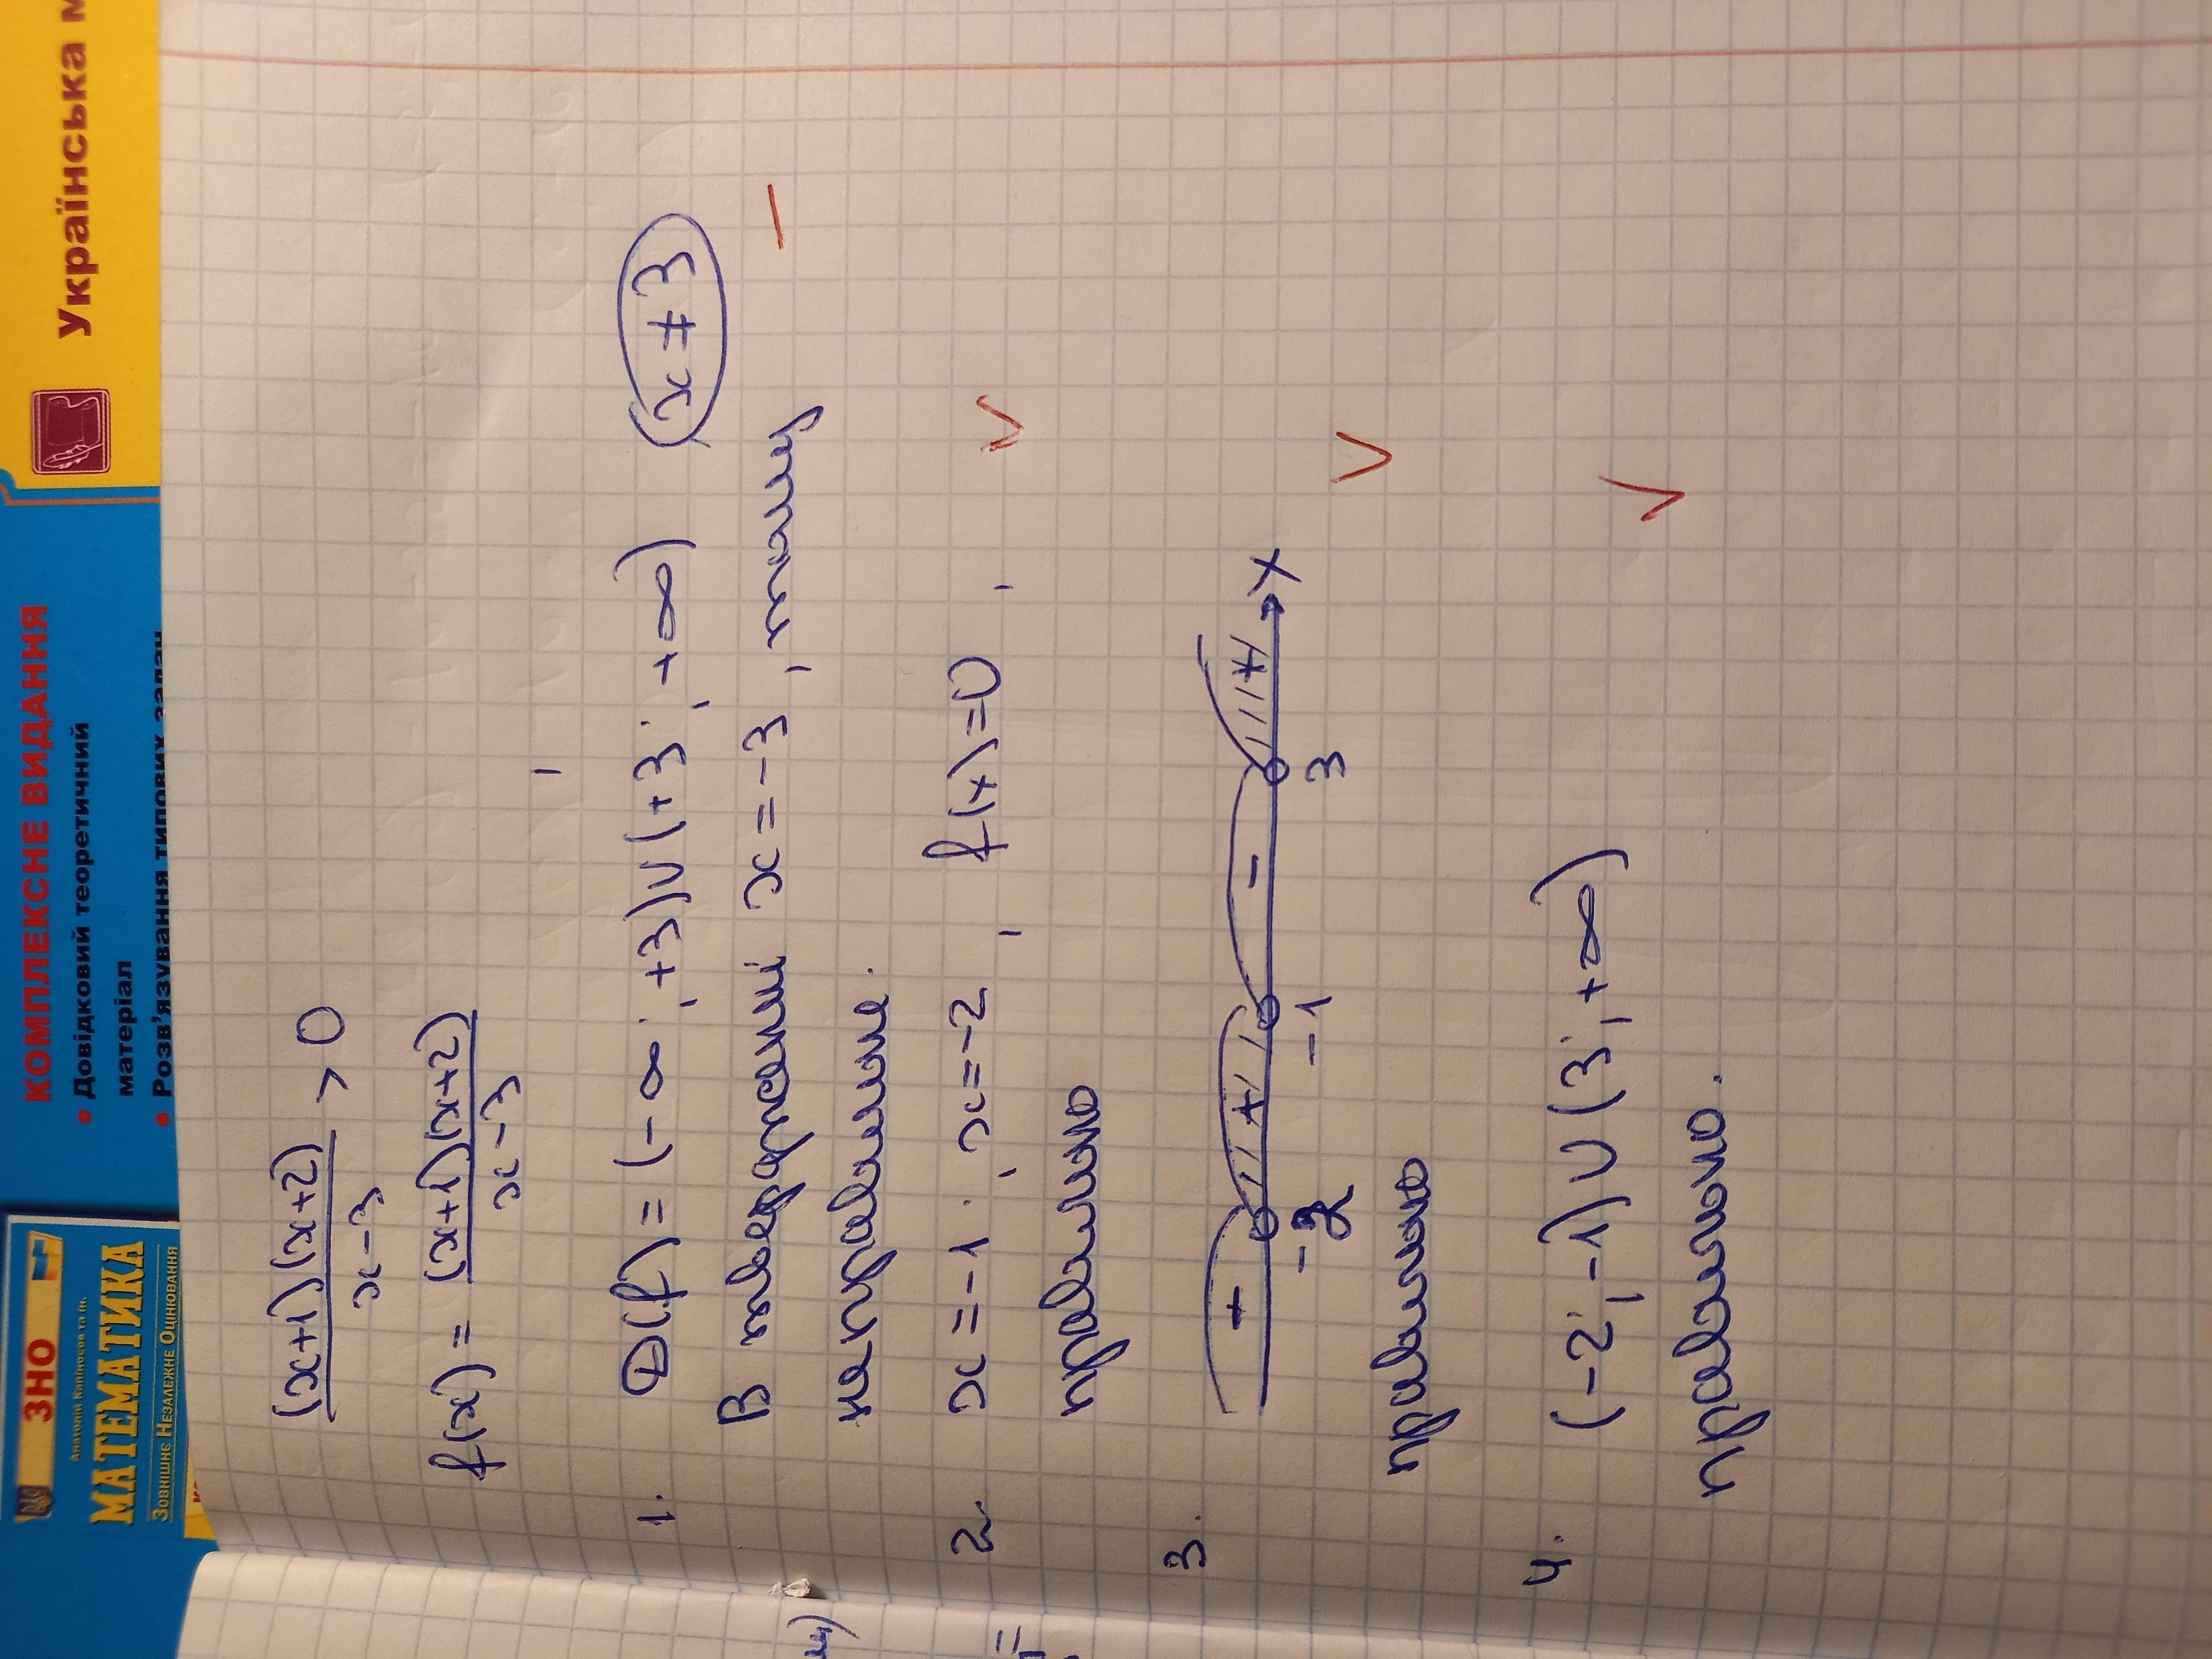 Українська м
КОМПЛЕКСНЕ ВИДАННЯ
• Довідковий теоретичний
матеріал
• Розв'язування типових задач
ЗНО
Анатолій Капіносов та ін.
МАТЕМАТИКА
Зовнішнє Незалежне Оцінювання
(x+1)(x+2) / x-3 > 0
f(x) = (x+1)(x+2) / x-3
1. D(f) = (-∞; +3)∪(+3; +∞) (x ≠ 3)
В твердженні x = -3, тому
неправильно. –
2. x = -1; x = -2, f(x)=0,
правильно V
3. + + - + x
-2 -1 3
правильно V
4. (-2; -1)∪(3; +∞)
правильно. V